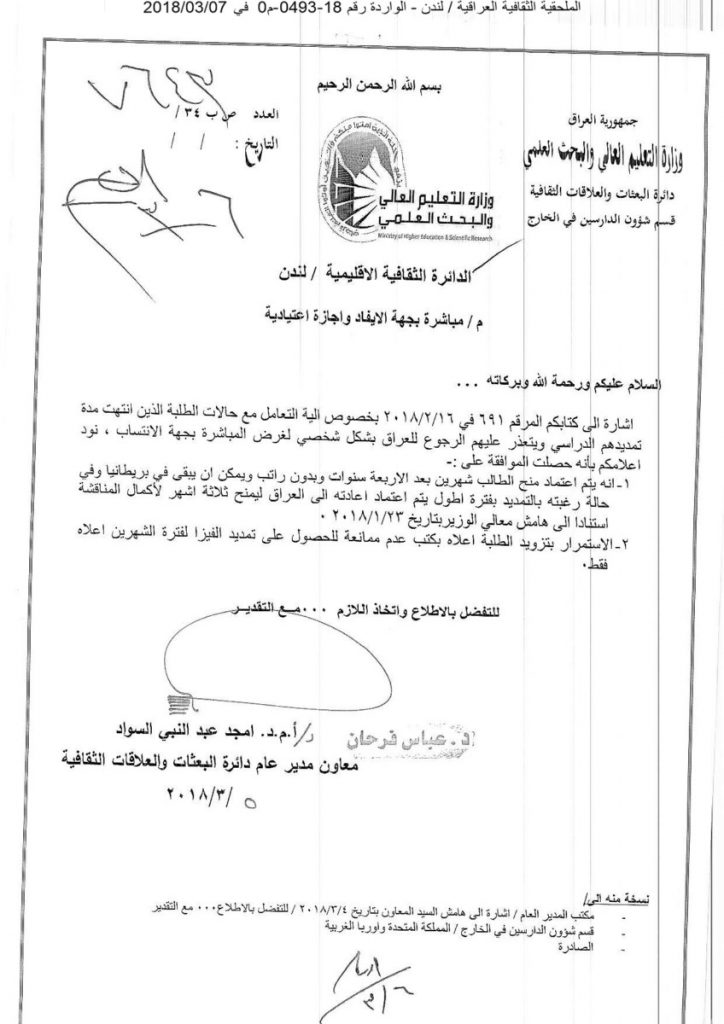 الملحقية الثقافية العراقية / لندن - الواردة رقم 18-0493-م0 في 2018/03/07
بسم الله الرحمن الرحيم
جمهورية العراق
وزارة التعليم العالي والبحث العلمي
دائرة البعثات والعلاقات الثقافية
قسم شؤون الدارسين في الخارج
وزارة التعليم العالي
والبحث العلمي
Ministry of Higher Education & Scientific Research
العدد ص ب ٣٤/
٧٦٤٣
التاريخ : / /
الدائرة الثقافية الاقليمية / لندن
م/ مباشرة بجهة الايفاد واجازة اعتيادية
السلام عليكم ورحمة الله وبركاته ...
اشارة الى كتابكم المرقم ٦٩١ في ٢٠١٨/٢/١٦ بخصوص الية التعامل مع حالات الطلبة الذين انتهت مدة
تمديدهم الدراسي ويتعذر عليهم الرجوع للعراق بشكل شخصي لغرض المباشرة بجهة الانتساب ، نود
اعلامكم بأنه حصلت الموافقة على :-
١- انه يتم اعتماد منح الطالب شهرين بعد الاربعة سنوات وبدون راتب ويمكن ان يبقى في بريطانيا وفي
حالة رغبته بالتمديد بفترة اطول يتم اعتماد اعادته الى العراق ليمنح ثلاثة اشهر لأكمال المناقشة
استنادا الى هامش معالي الوزير بتاريخ ٢٠١٨/١/٢٣ ٠
٢- الاستمرار بتزويد الطلبة اعلاه بكتب عدم ممانعة للحصول على تمديد الفيزا لفترة الشهرين اعلاه
فقط.
للتفضل بالاطلاع واتخاذ اللازم ٠٠٠مع التقدير
د. عباس فرحان
د/أ.م.د. امجد عبد النبي السواد
معاون مدير عام دائرة البعثات والعلاقات الثقافية
٢٠١٨/٣/٥
نسخة منه الى/
- مكتب المدير العام / اشارة الى هامش السيد المعاون بتاريخ ٢٠١٨/٣/٤ / للتفضل بالاطلاع٠٠٠ مع التقدير
- قسم شؤون الدارسين في الخارج / المملكة المتحدة واوربا الغربية
- الصادرة